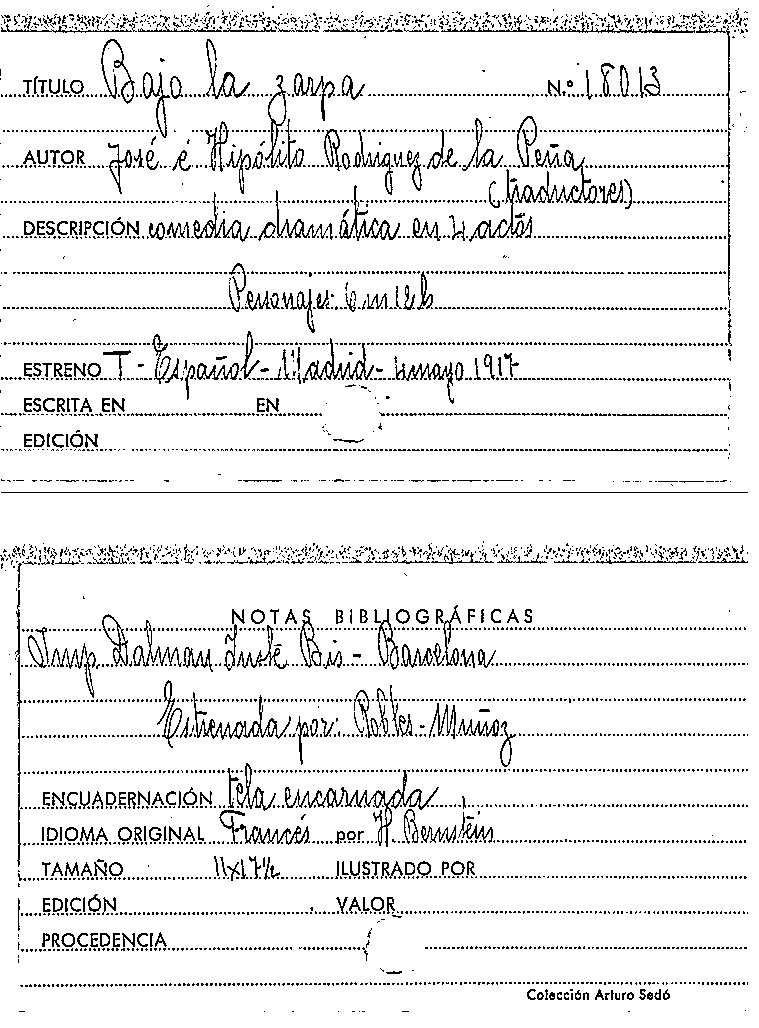 TÍTULO Bajo la zarpa N.º 18013
AUTOR José é Hipólito Rodriguez de la Peña
(traductores)
DESCRIPCIÓN comedia dramática en 4 actos
Personajes: 6 m 12 h
ESTRENO T - Español - Madrid - 4 mayo 1917
ESCRITA EN EN
EDICIÓN
NOTAS BIBLIOGRÁFICAS
Imp Dalmau Bis - Barcelona
Estrenada por: Robles - Muñoz
ENCUADERNACIÓN tela encarnada
IDIOMA ORIGINAL Francés por H. Bernstein
TAMAÑO 11x17½ ILUSTRADO POR
EDICIÓN VALOR
PROCEDENCIA
Colección Arturo Sedó